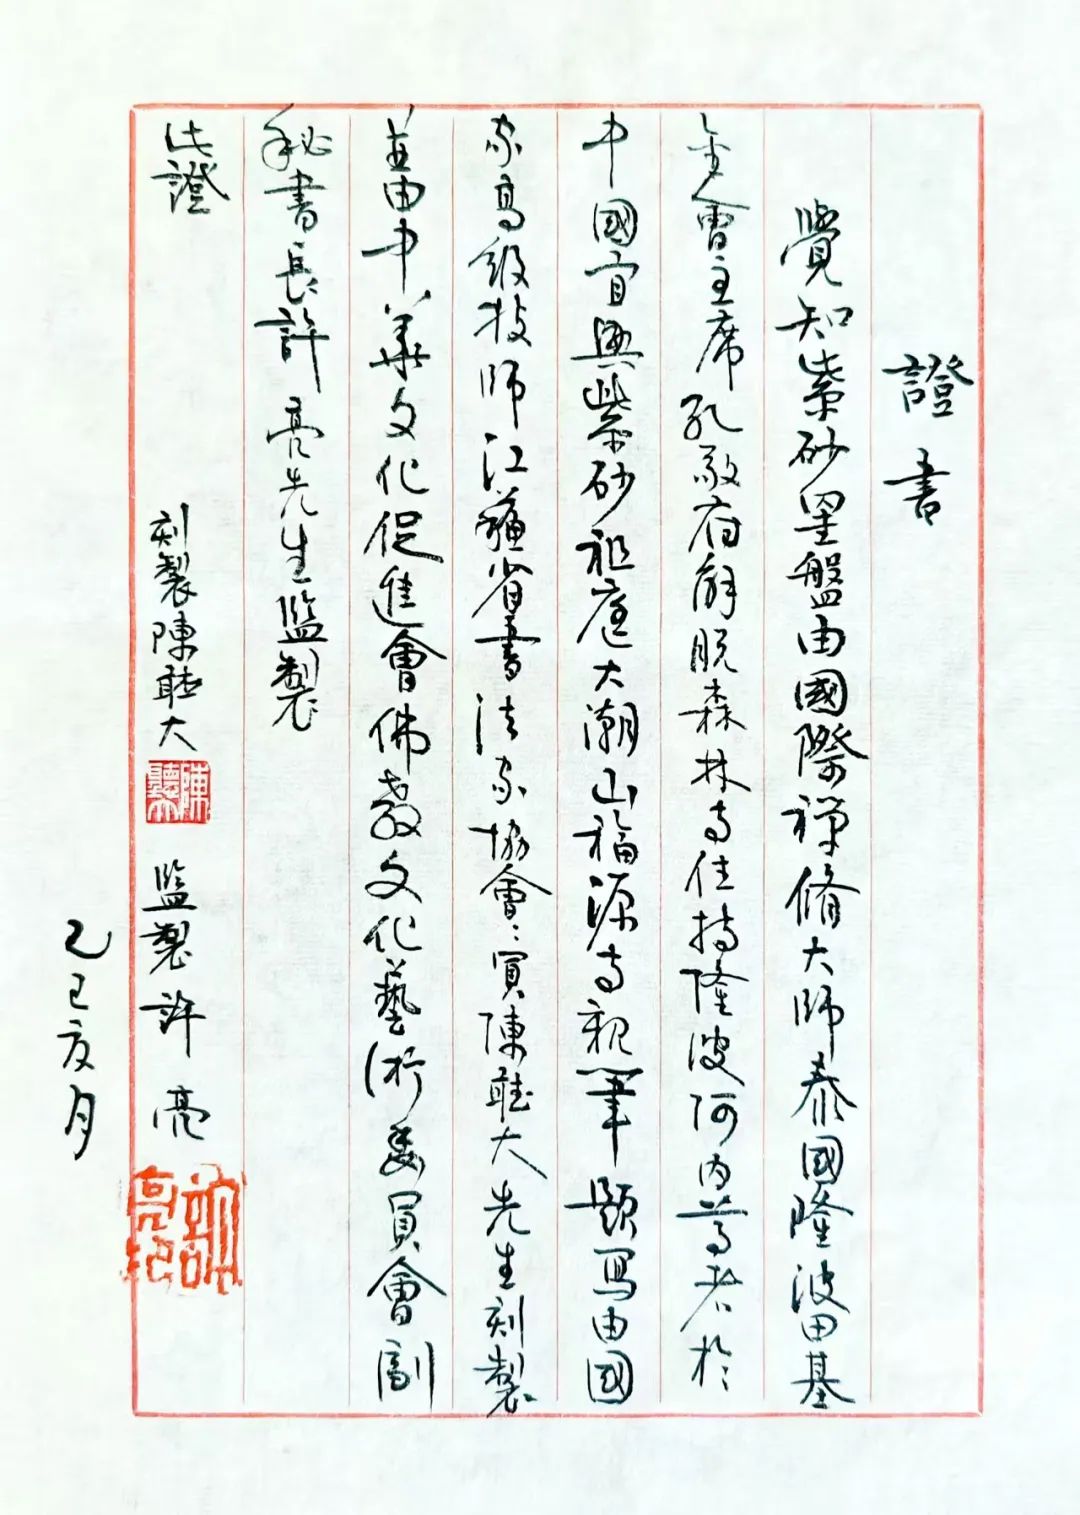 證書
覺知紫砂星盤由國際禪脩大師泰國隆波田基
金會主席孔敬府解脫森林寺住持隆波阿內尊者於
中國宜興紫砂祖庭大潮山福源寺親筆題寫由國
家高級技師江蘇省書法家協會會員陳聽大先生刻製
並由中華文化促進會佛教文化藝術委員會副
秘書長許亮先生監製
此證
刻製陳聽大 監製許亮
乙巳亥月